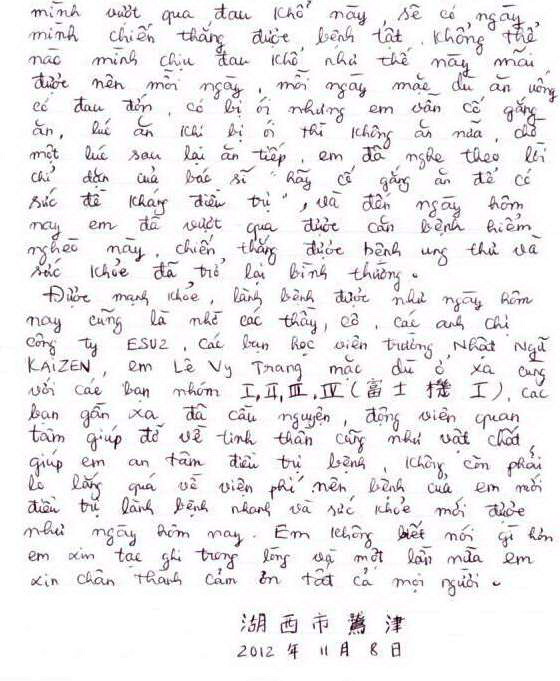 mình vượt qua đau khổ này, sẽ có ngày
mình chiến thắng được bệnh tật. Không thể
nào mình chịu đau khổ như thế này mãi
được nên mỗi ngày, mỗi ngày mặc dù ăn uống
có đau đớn, có bị ói nhưng em vẫn cố gắng
ăn, lúc ăn khi bị ói thì không ăn nữa, chờ
một lúc sau lại ăn tiếp, em đã nghe theo lời
chỉ dẫn của bác sĩ "hãy cố gắng ăn để có
sức đề kháng điều trị", và đến ngày hôm
nay em đã vượt qua được căn bệnh hiểm
nghèo này, chiến thắng được bệnh ung thư và
sức khỏe đã trở lại bình thường.
Được mạnh khỏe, lành bệnh được như ngày hôm
nay cũng là nhờ các thầy, cô, các anh chị
công ty ESUZ, các bạn học viên trường Nhật Ngữ
KAIZEN, em Lê Vy Trang mặc dù ở xa cùng
với các bạn nhóm I, II, III, IV (富士機 I), các
bạn gần xa đã cầu nguyện, động viên quan
tâm giúp đỡ về tinh thần cũng như vật chất,
giúp em an tâm điều trị bệnh, không còn phải
lo lắng quá về viện phí nên bệnh của em mới
điều trị lành bệnh nhanh và sức khỏe mới được
như ngày hôm nay. Em không biết nói gì hơn
em xin tạc ghi trong lòng và một lần nữa em
xin chân thành cảm ơn tất cả mọi người.
湖西市鷲津
2012年 11月 8日